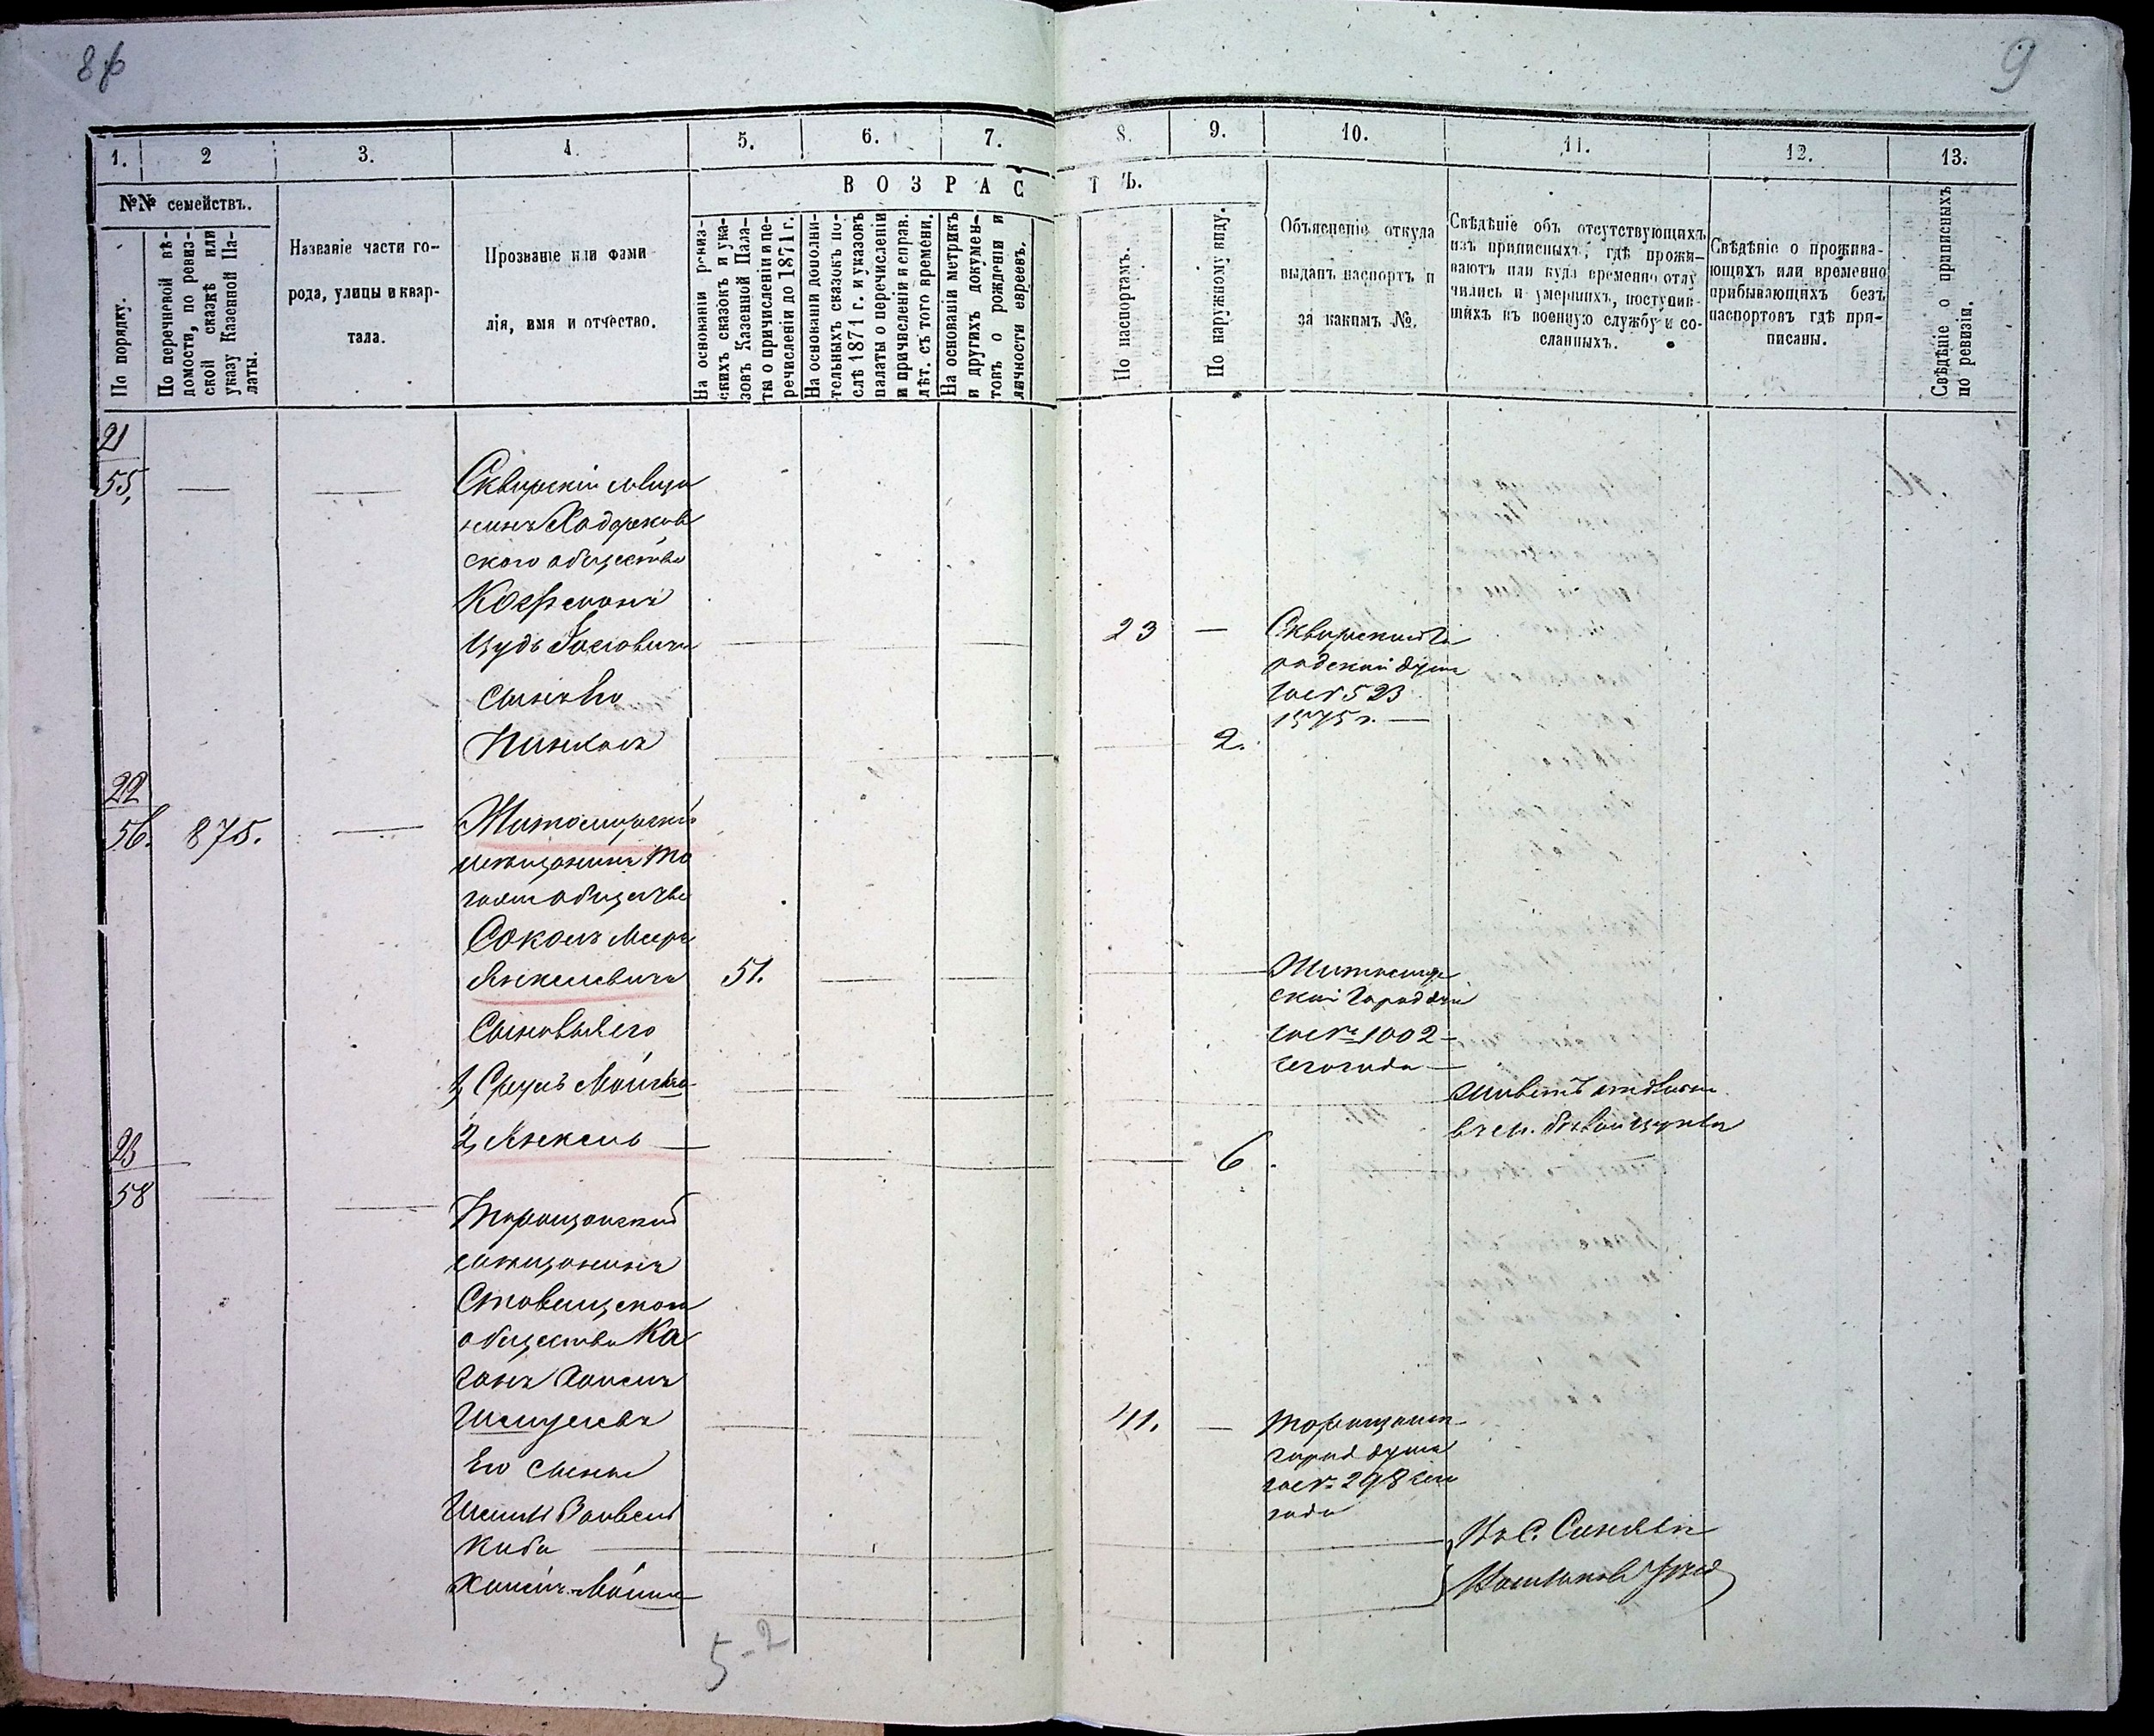 8
9
1.
2
3.
4.
5.
6.
7.
8.
9.
10.
11.
12.
13.
№№ семействъ.
По порядку.
По перечневой вѣ-
домости, по ревиз-
ской сказкѣ или
указу Казенной Па-
латы.
Названіе части го-
рода, улицы и квар-
тала.
Прозваніе или фами
лія, имя и отчество.
ВОЗРАС
ТЪ.
На основаніи ревиз-
скихъ сказокъ и ука-
зовъ Казенной Пала-
ты о причисленіи и пе-
речисленіи до 1871 г.
На основаніи дополни-
тельныхъ сказокъ по-
слѣ 1871 г. и указовъ
палаты о перечисленіи
и причисленіи и справ.
лѣт. съ того времени.
На основаніи метрикъ
и другихъ докумен-
товъ о рожденіи и
личности евреевъ.
По паспортамъ.
По наружному виду.
Объясненіе откуда
выданъ паспортъ и
за какимъ №.
Свѣдѣніе объ отсутствующихъ
изъ приписныхъ, гдѣ прожи-
ваютъ или куда временно отлу
чились и умершихъ, поступив-
шихъ въ военную службу и со-
сланныхъ.
Свѣдѣніе о прожива-
ющихъ или временно
прибывающихъ безъ
паспортовъ гдѣ при-
писаны.
Свѣдѣніе о приписныхъ
по ревизіи.
21
55,
Сквирскій мѣща
нинъ Ходорков
ского общества
Кофманъ
Иудь
сынъ Его
Пинхасъ
23
Сквирской Го
родской Думы
523
1875 г.
2.
22
56.
875.
Житомирскій
мѣщанинъ то
гоже общества
Соколъ Мееръ
Янкелевичъ
51.
Житомир
ской Город
№ 1002
сего года
Сыновья его
1, Срулъ Мойше
2, Янкель
6.
живетъ отдѣльно
23
58
Таращанскій
мѣщанинъ
Ставищского
общества Ка
ганъ Хаимъ
Шмулевъ
41.
Таращанск
город думы
№ 298 сего
года
Его сыны
Шмиль Вольвель
Киба
Хаимъ-Мойше
Въ С.
5-2